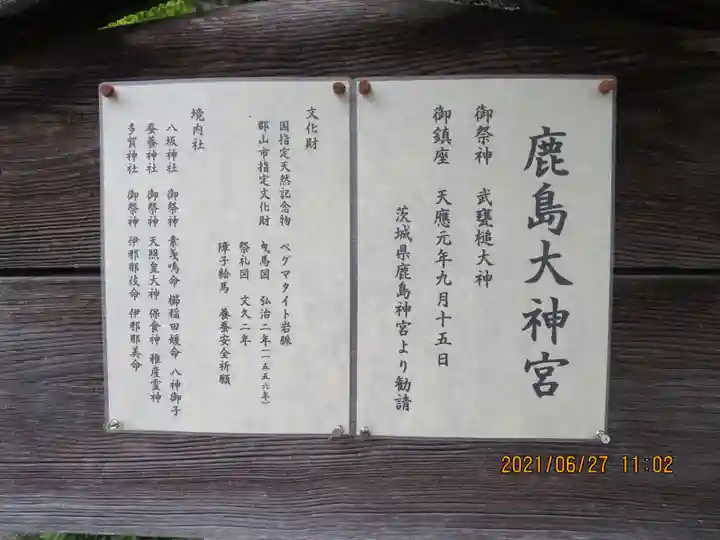 鹿島大神宮
御祭神 武甕槌大神
御鎮座 天應元年九月十五日
茨城県鹿島神宮より勧請
文化財
国指定天然記念物 ペグマタイト岩脈
郡山市指定文化財 曳馬図 弘治二年(一五五六年)
祭礼図 文久二年
障子絵馬 養蚕安全祈願
境内社
八坂神社 御祭神 素戔嗚命 櫛稲田媛命 八神御子
蚕養神社 御祭神 天照皇大神 保食神 稚産霊神
多賀神社 御祭神 伊邪那伎命 伊邪那美命
2021/06/27 11:02